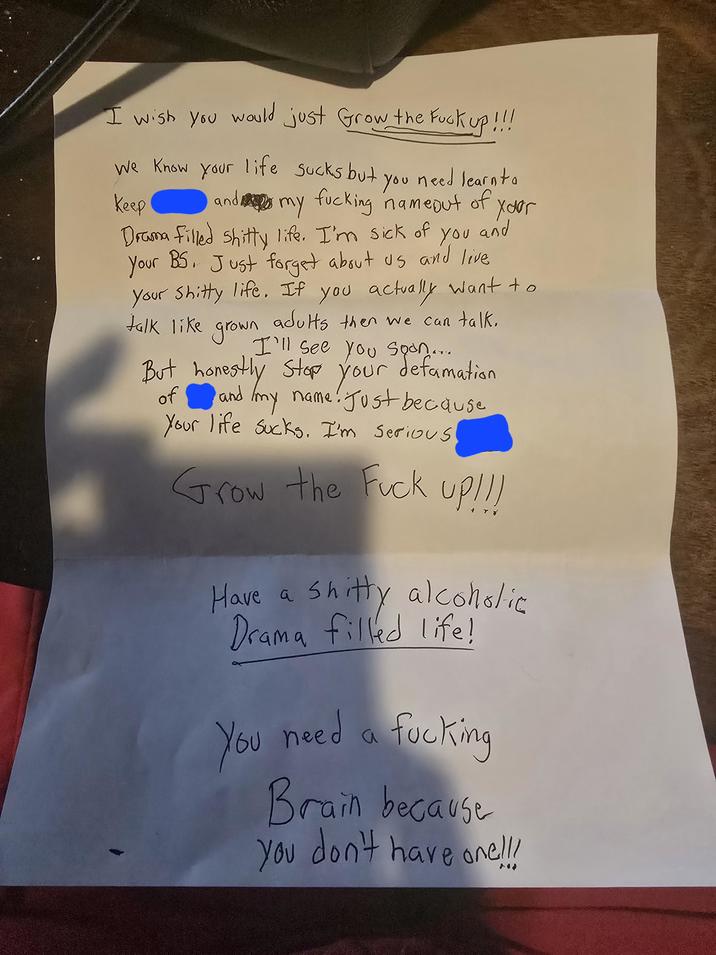 I wish you would just Grow the Fuck up!!!
We Know your life sucks but you need learn to
Keep and my fucking name out of your
Drama filled shitty life. I'm sick of you and
your BS. Just forget about us and live
your shitty life. If you actually want to
talk like grown adults then we can talk.
I'll see you soon...
But honestly stop your defamation
of and my name! Just because
Your life sucks. I'm serious
Grow the Fuck up!!!
Have a shitty alcoholic
Drama filled life!
You need a fucking
Brain because
you don't have one!!!